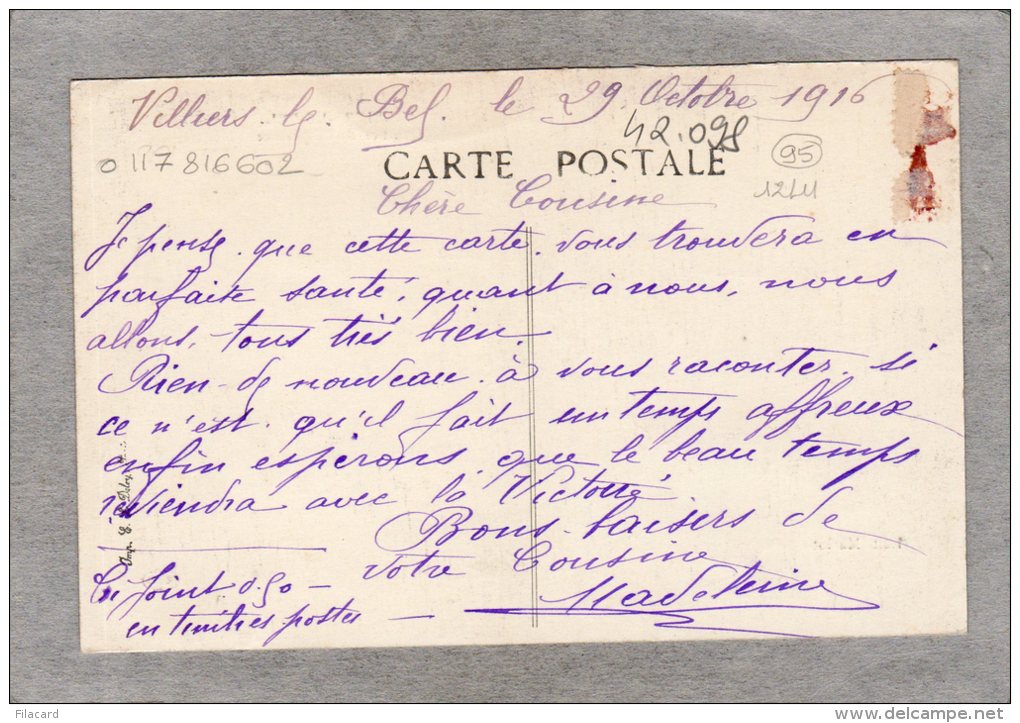 Villiers-le-Bel. le 29 Octobre 1916
42.098
CARTE POSTALE
95
0 117 816602
Chère Cousine
Je pense que cette carte vous trouvera en
parfaite santé, quant à nous, nous
allons, tous très bien.
Rien de nouveau à vous raconter si
ce n'est qu'il fait un temps affreux
enfin espérons que le beau temps
reviendra avec la Victoire
Bons baisers de
votre Cousine
Madeleine
Ci Joint 0.50 —
en timbres postes —
Imp. E.
Filacard
www.delcampe.net